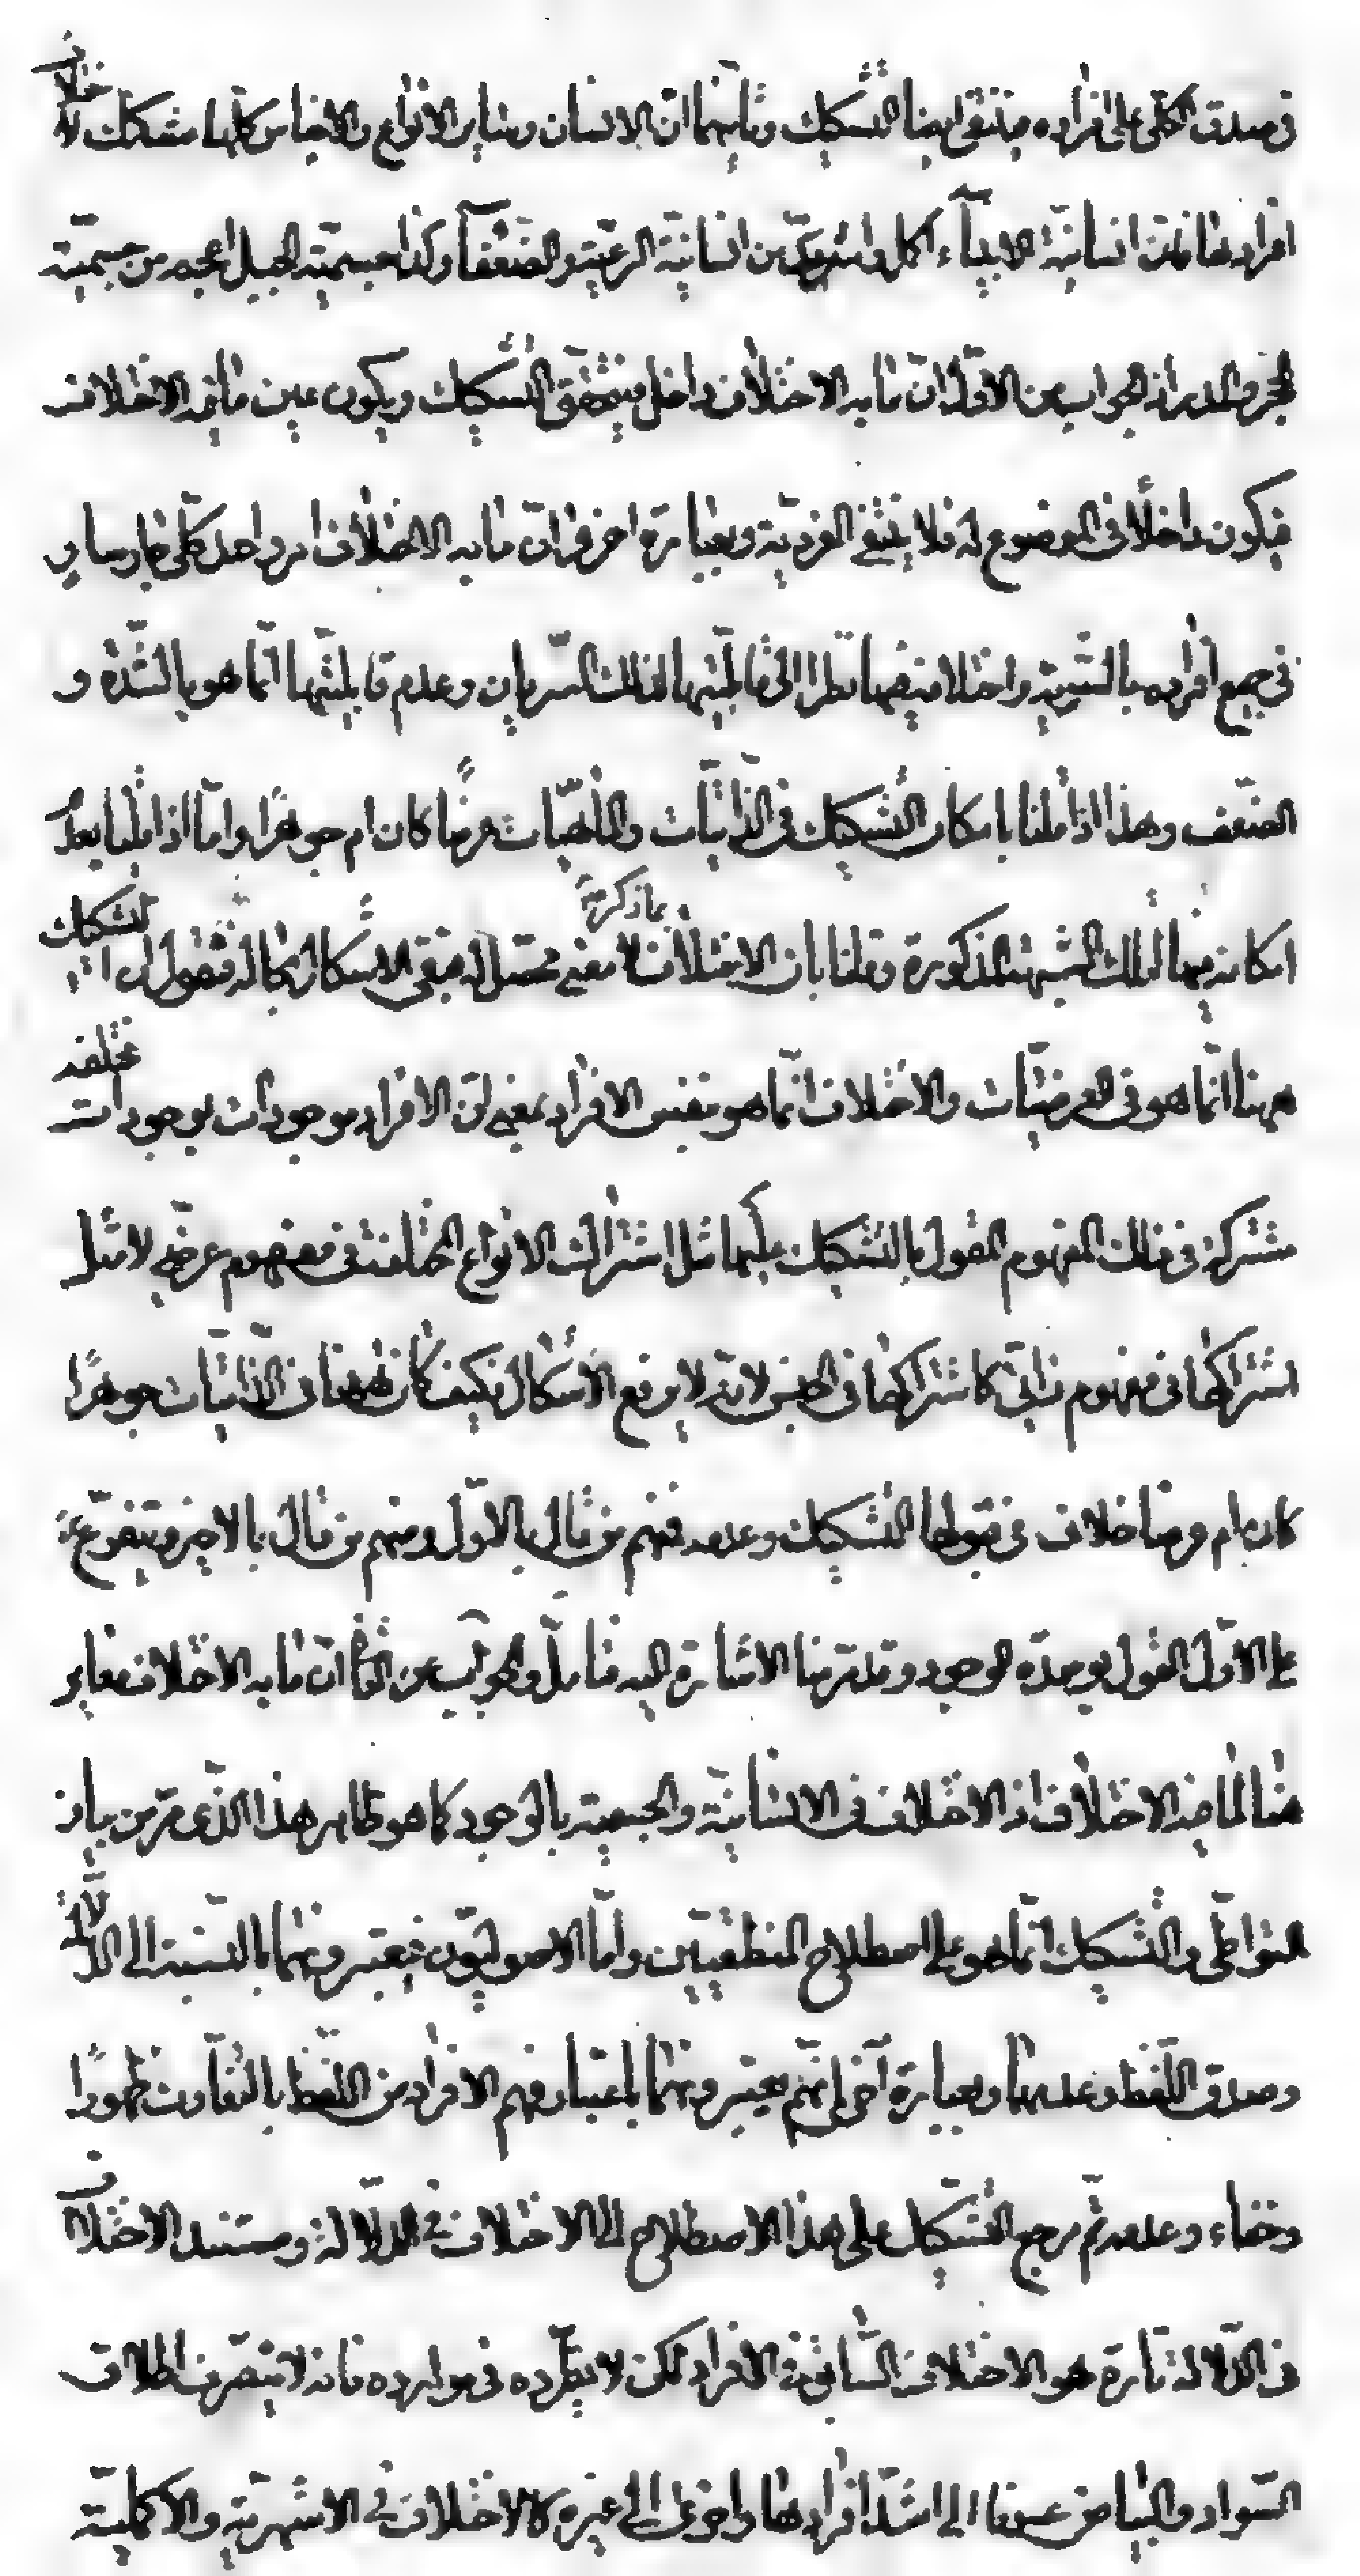 في صدق الكلي على افراده فينتفي ايضا التشكيك وثانيهما ان الانسان وساير الانواع والاجناس كلها مشكك لاختلاف
افرادها فان انسانية الانبياء اكمل واشد من انسانية الرعية والضعفآء وكذا جسمية الجبل اعجم من جسمية
الحجر والمدر اذ الجواب من الاول ان ما به الاختلاف داخل فيتحقق التشكيك ويكون عين ما فيه الاختلاف
فيكون داخلا في الموضوع له فلا ينتفي الفردية وبعبارة اخرى ان ما به الاختلاف امر واحد كلي جار وسار
في جميع افراده بالسوية واختلافها نظرا الى قابليتها لذلك السريان وعدم قابليتها انما هو بالشدة و
الضعف وهذا اذا قلنا بامكان التشكيك في الذاتيات والماهيات عرضا كان ام جوهرا واما اذا قلنا بعدم
امكانه فيها لتلك الشبهة المذكورة وقلنا بان الاختلاف بما ذكر فيه لا معنى محصل له فيبقى الاشكال بحاله فنقول ان التشكيك
ههنا انما هو في العرضيات والاختلاف انما هو بنفس الافراد بمعنى ان الافراد موجودات بوجودات مختلفة
مشتركة في ذلك المفهوم المقول بالتشكيك عليها مثل اشتراك الانواع المختلفة في مفهوم عرضي لا مثل
اشتراكها في مفهوم ذاتي كاشتراكها في الجنس لانه لا يرفع الاشكال فكيف كان فهنا في الذاتيات جوهرا
كان ام عرضا خلاف في قبولها التشكيك وعدمه فمنهم من قال بالاول ومنهم من قال بالاخير ويتفرع
على الاول القول بوحدة الوجود وقد مرتنا الاشارة اليه فتامل والجواب عن الثاني ان ما به الاختلاف مغاير
هنا لما فيه الاختلاف اذ الاختلاف في الانسانية والجسمية بالوجود كما هو ظاهر هذا الذي مر من بيان
التواطي والتشكيك انما هو على اصطلاح المنطقيين واما الاصوليون فيعتبرونهما بالنسبة الى الدلالة
وصدق اللفظ وعدمها وبعبارة اخرى انهم يعتبرونهما باعتبار فهم الافراد من اللفظ بالتفاوت ظهورا
وخفاء وعدمه ثم مرجع التشكيك على هذا الاصطلاح الى الاختلاف في الدلالة ومستند الاختلاف
في الدلالة تارة هو الاختلاف السابق في الافراد لكن لا يطرده في موارده فانه لا ينصرف اطلاق
السواد والبياض عرفا الى اشد افرادها واخرى الى غيره كالاختلاف في الاشهرية والاكملية